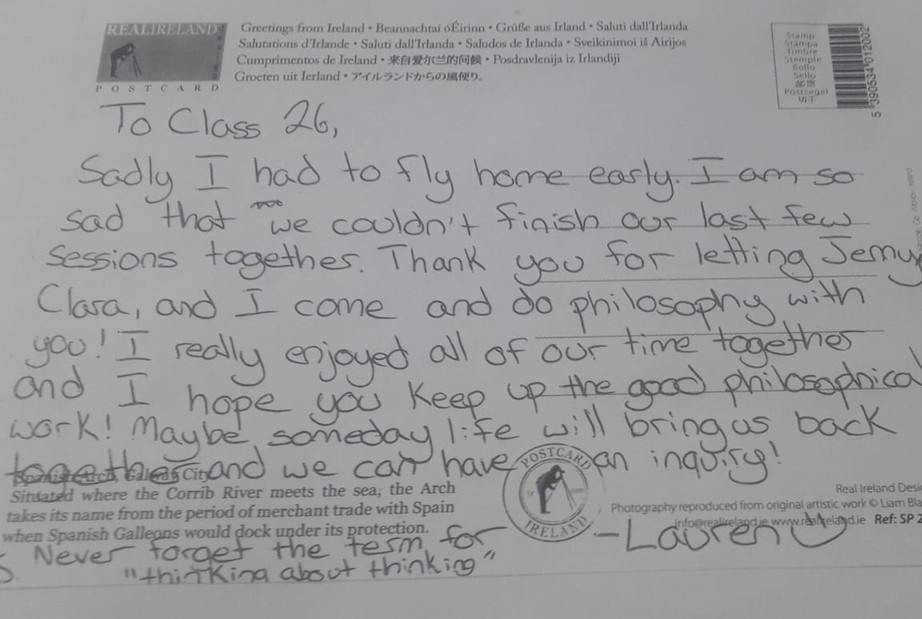 REALIRELAND
POSTCARD
Greetings from Ireland • Beannachtaí óÉirinn • Grüße aus Irland • Saluti dall'Irlanda
Salutations d'Irlande • Saluti dall'Irlanda • Saludos de Irlanda • Sveikinimoi iš Airijos
Cumprimentos de Ireland • 来自爱尔兰的问候 • Posdravlenija iz Irlandiji
Groeten uit Ierland • アイルランドからの風便り。
Stamp
Stampa
Timbre
Stemple
Bollo
Sello
邮票
Postzegel
切手
5 390534 012002
To Class 26,
Sadly I had to fly home early. I am so
sad that we couldn't finish our last few
sessions together. Thank you for letting Jemy,
Clara, and I come and do philosophy with
you! I really enjoyed all of our time together
and I hope you keep up the good philosophical
work! Maybe someday life will bring us back
together and we can have an inquiry!
City
Situated where the Corrib River meets the sea; the Arch
takes its name from the period of merchant trade with Spain
when Spanish Galleons would dock under its protection.
POSTCARD
IRELAND
Real Ireland Desi
Photography reproduced from original artistic work © Liam Bla
info@realireland.ie www.realireland.ie Ref: SP 2
- Lauren
S Never forget the term for
"thinking about thinking"